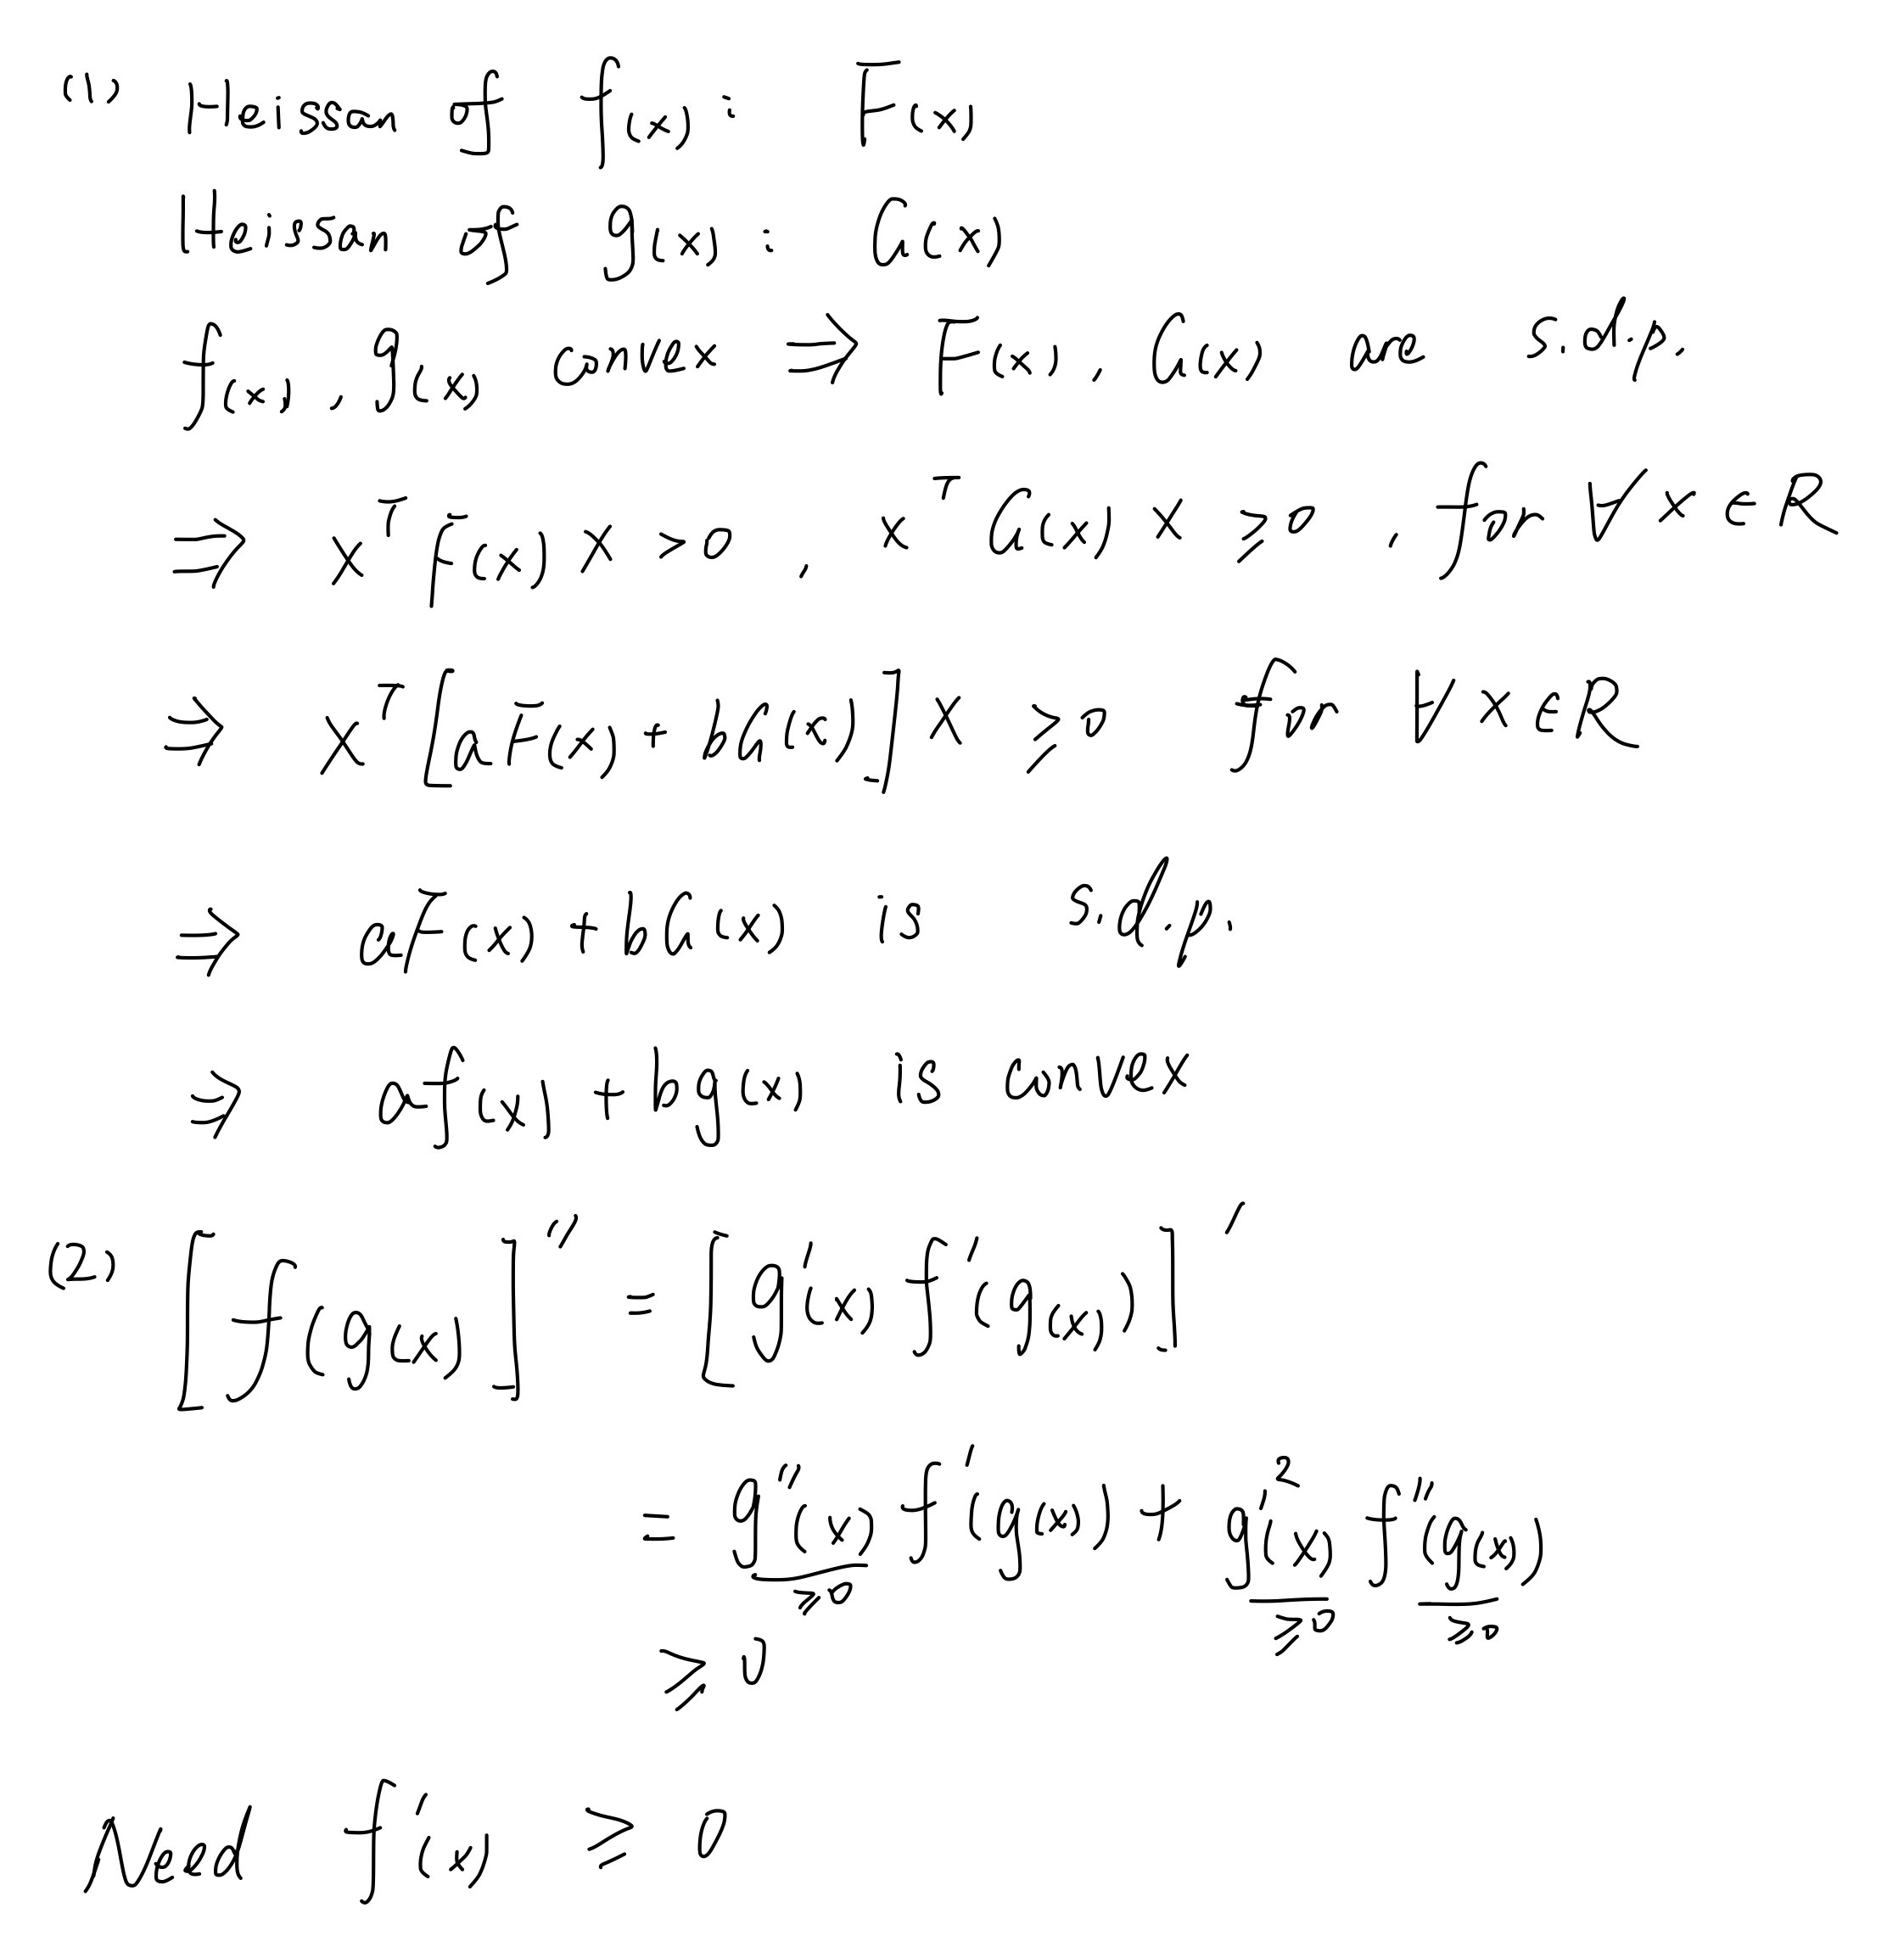 (1) Heissan of f(x): F(x)
Heissan of g(x): G(x)
f(x), g(x) convex ⇒ F(x), G(x) are s.d.p.
⇒ x^T F(x) x >0, x^T G(x) x ≥0. for ∀x∈R
⇒ x^T [aF(x)+bG(x)] x ≥0 for ∀x∈R
⇒ aF(x)+bG(x) is s.d.p.
⇒ af(x)+bg(x) is convex
(2) [f(g(x))]'' = [g'(x) f'(g(x))]'
= g''(x) f'(g(x)) + g'^2(x) f''(g(x))
≥0 ≥0 ≥0
≥0
Need f'(x) ≥ 0